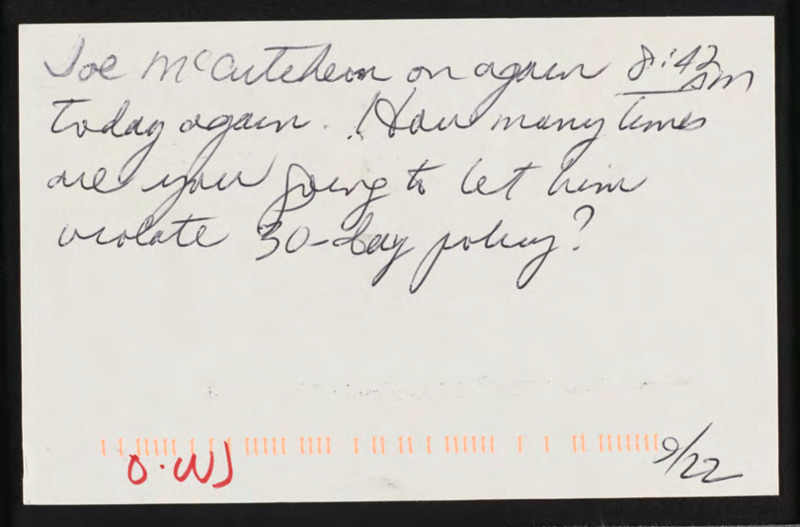 Joe McCutcheon on again 8:42 am
today again. How many times
are you going to let him
violate 30-day policy?
9/22
O.WJ